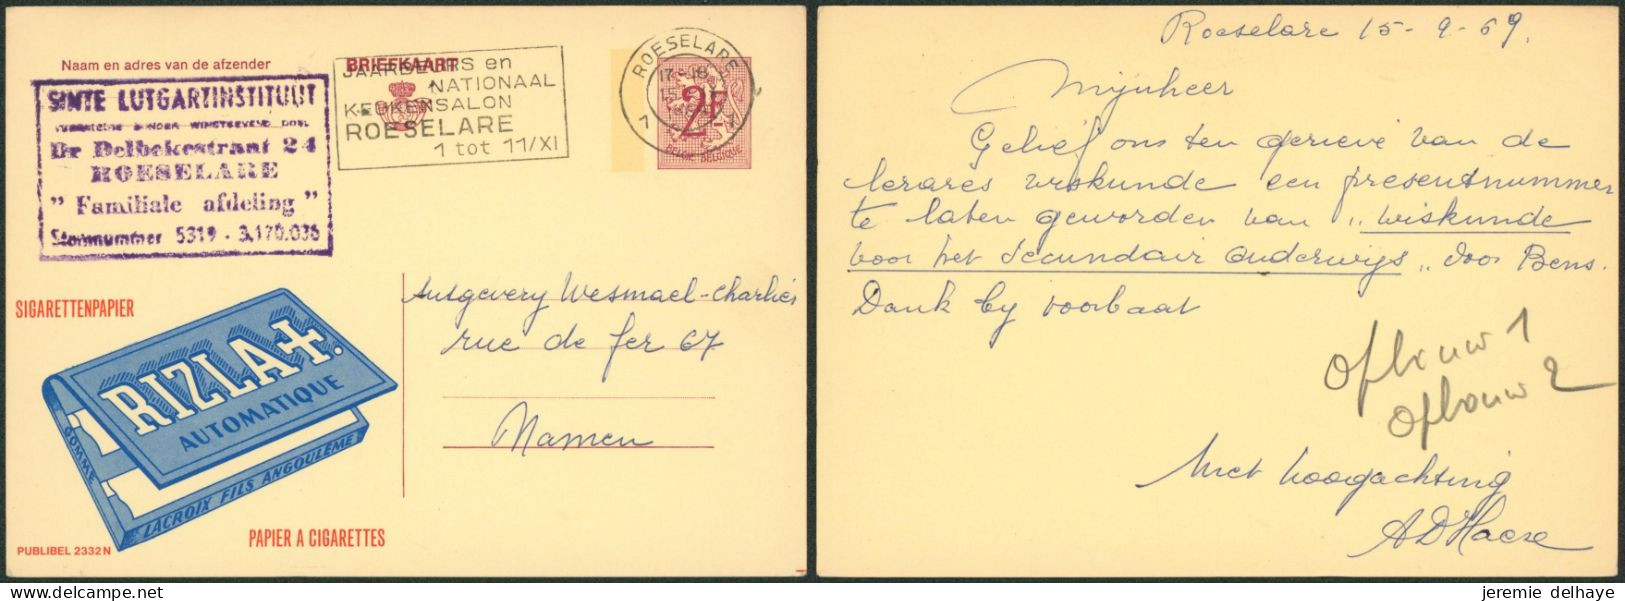 Naam en adres van de afzender
SINTE LUTGARTINSTITUUT
VERENIGING ZONDER WINSTGEVEND DOEL
Dr Delbekestraat 24
ROESELARE
" Familiale afdeling "
Stamnummer 5319 - 3.170.036
BRIEFKAART
JAARBEURS en
NATIONAAL
KEUKENSALON
ROESELARE
1 tot 11/XI
ROESELARE
17-18
15
1 1
2F
BELGIE-BELGIQUE
SIGARETTENPAPIER
RIZLA+.
AUTOMATIQUE
GOMME
LACROIX FILS ANGOULEME
PAPIER A CIGARETTES
PUBLIBEL 2332 N
Uitgevery Wesmael-Charlier
rue de fer 67
Namen
Roeselare 15-9-69.
Mijnheer
Gelief ons ten gerieve van de
lerares wiskunde een presentnummer
te laten geworden van „wiskunde
voor het Secundair Onderwijs" door Bens.
Dank bij voorbaat
Opbouw 1
Opbouw 2
Met hoogachting
A D'Haese
jeremie delhaye